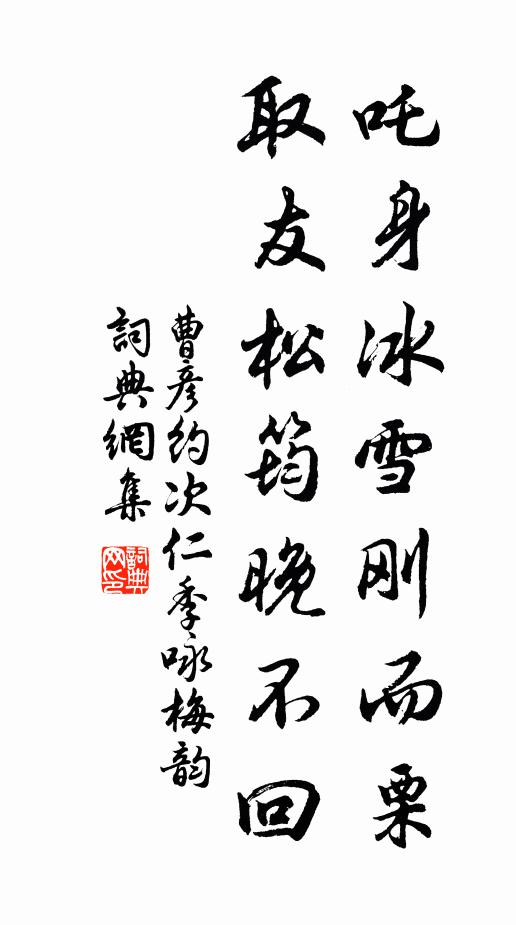 吒身冰雪刚而栗
取友松筠晚不回
曹彦约次仁季咏梅韵
詞典網集
詞典網印